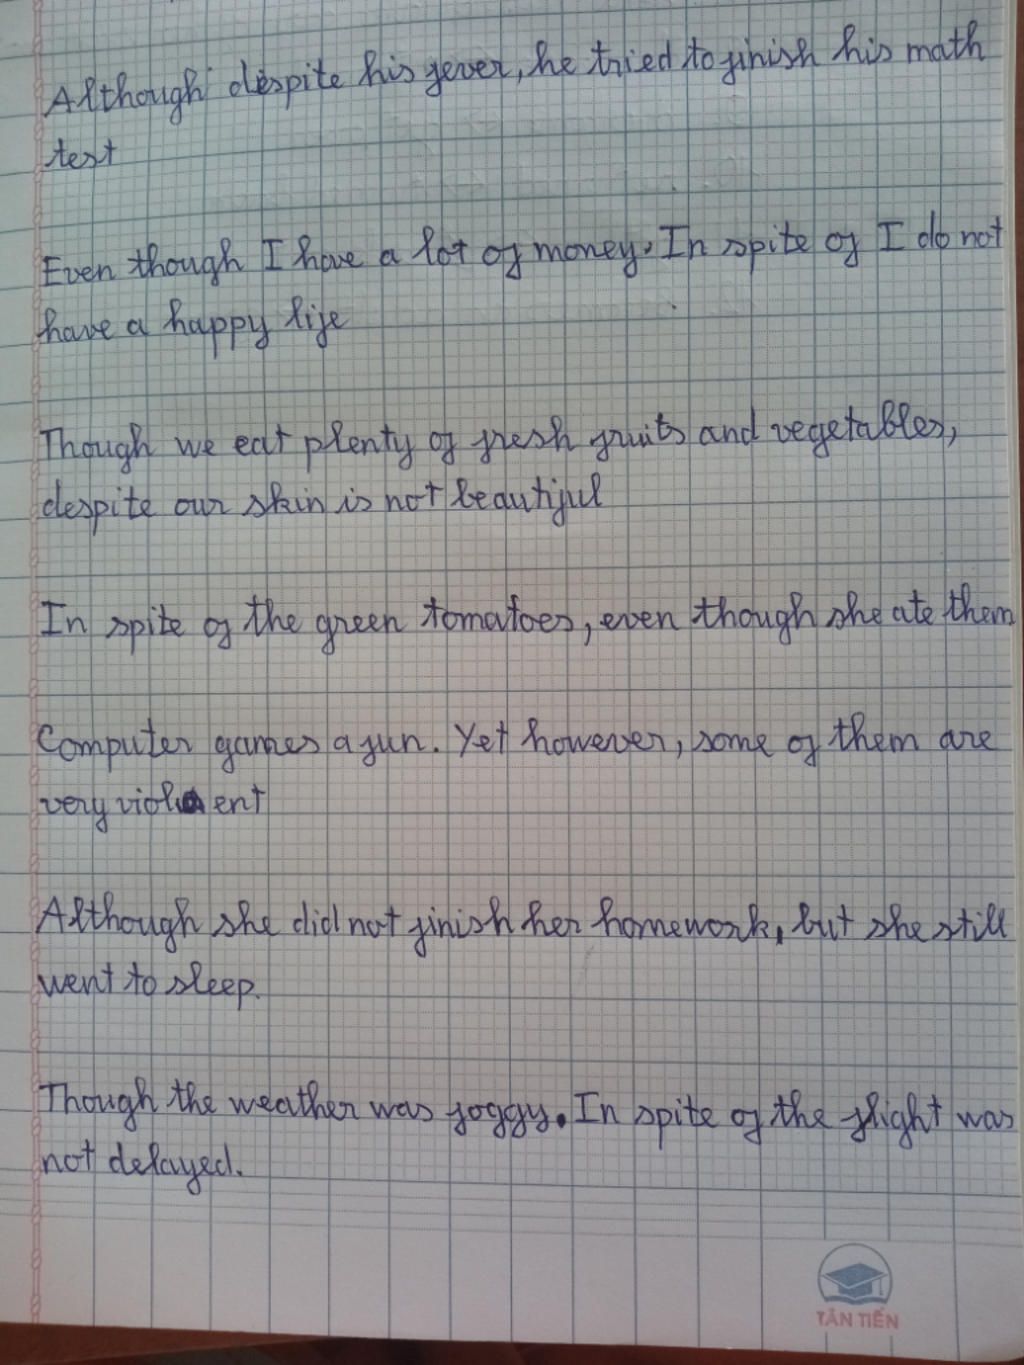 Although despite his fever, he tried to finish his math
test
Even though I have a lot of money. In spite of I do not
have a happy life
Though we eat plenty of fresh fruits and vegetables,
despite our skin is not beautiful
In spite of the green tomatoes, even though she ate them
Computer games a fun. Yet however, some of them are
very violent
Although she did not finish her homework, but she still
went to sleep.
Though the weather was foggy. In spite of the flight was
not delayed.
TÂN TIẾN